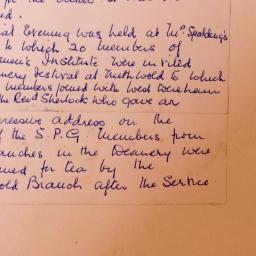 for the
ed.
al Evening was held at Mrs Spalding's
to which 20 members of
men's Institute were invited
nery Festival at Methwold to which
members joined with West Dereham
The Revd Sherlock who gave an
pressive address on the
f the S.P.G. Members from
anches in the Deanery were
ned for tea by the
old Branch after the Service